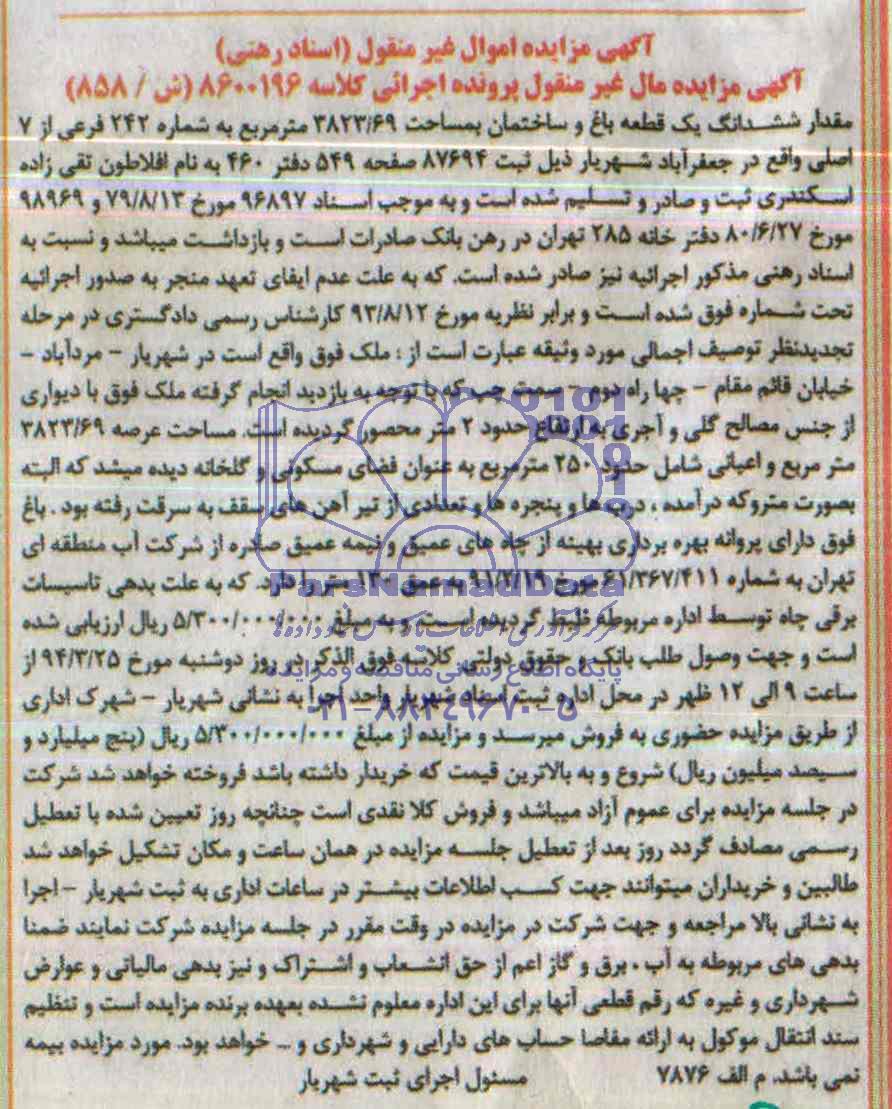 آگهی مزایده اموال غیر منقول (اسناد رهنی)
آگهی مزایده مال غیر منقول پرونده اجرائی کلاسه ۸۶۰۰۱۹۶ (ش / ۸۵۸)
مقدار ششدانگ یک قطعه باغ و ساختمان بمساحت ۳۸۲۳/۶۹ مترمربع به شماره ۲۴۲ فرعی از ۷
اصلی واقع در جعفرآباد شهریار ذیل ثبت ۸۷۶۹۴ صفحه ۵۴۹ دفتر ۴۶۰ به نام افلاطون تقی زاده
اسکندری ثبت و صادر و تسلیم شده است و به موجب اسناد ۹۶۸۹۷ مورخ ۷۹/۸/۱۳ و ۹۸۹۶۹
مورخ ۸۰/۶/۲۷ دفتر خانه ۲۸۵ تهران در رهن بانک صادرات است و بازداشت میباشد و نسبت به
اسناد رهنی مذکور اجرائیه نیز صادر شده است. که به علت عدم ایفای تعهد منجر به صدور اجرائیه
تحت شماره فوق شده است و برابر نظریه مورخ ۹۳/۸/۱۲ کارشناس رسمی دادگستری در مرحله
تجدیدنظر توصیف اجمالی مورد وثیقه عبارت است از : ملک فوق واقع است در شهریار - مردآباد -
خیابان قائم مقام - چها راه دوم - سمت چپ که با توجه به بازدید انجام گرفته ملک فوق با دیواری
از جنس مصالح گلی و آجری به ارتفاع حدود ۲ متر محصور گردیده است. مساحت عرصه ۳۸۲۳/۶۹
متر مربع و اعیانی شامل حدود ۲۵۰ مترمربع به عنوان فضای مسکونی و گلخانه دیده میشد که البته
بصورت متروکه درآمده ، درب ها و پنجره ها و تعدادی از تیر آهن های سقف به سرقت رفته بود . باغ
فوق دارای پروانه بهره برداری بهینه از چاه های عمیق و نیمه عمیق صادره از شرکت آب منطقه ای
تهران به شماره ۶۱/۳۶۷/۴۱۱ مورخ ۹۱/۲/۱۹ به عمق ۱۳۰ متر را دارد. که به علت بدهی تاسیسات
برقی چاه توسط اداره مربوطه قلیظ گردیده است. و به مبلغ ۵/۳۰۰/۰۰۰/۰۰۰ ریال ارزیابی شده
است و جهت وصول طلب بانک و حقوق دولتی کلاسه فوق الذکر در روز دوشنبه مورخ ۹۴/۳/۲۵ از
ساعت ۹ الی ۱۲ ظهر در محل اداره ثبت اسناد شهریار واحد اجرا به نشانی شهریار - شهرک اداری
از طریق مزایده حضوری به فروش میرسد و مزایده از مبلغ ۵/۳۰۰/۰۰۰/۰۰۰ ریال (پنج میلیارد و
سیصد میلیون ریال) شروع و به بالاترین قیمت که خریدار داشته باشد فروخته خواهد شد شرکت
در جلسه مزایده برای عموم آزاد میباشد و فروش کلا نقدی است چنانچه روز تعیین شده با تعطیل
رسمی مصادف گردد روز بعد از تعطیل جلسه مزایده در همان ساعت و مکان تشکیل خواهد شد
طالبین و خریداران میتوانند جهت کسب اطلاعات بیشتر در ساعات اداری به ثبت شهریار - اجرا
به نشانی بالا مراجعه و جهت شرکت در مزایده در وقت مقرر در جلسه مزایده شرکت نمایند ضمنا
بدهی های مربوطه به آب ، برق و گاز اعم از حق انشعاب و اشتراک و نیز بدهی مالیاتی و عوارض
شهرداری و غیره که رقم قطعی آنها برای این اداره معلوم نشده بعهده برنده مزایده است و تنظیم
سند انتقال موکول به ارائه مفاصا حساب های دارایی و شهرداری و ... خواهد بود. مورد مزایده بیمه
نمی باشد. م الف ۷۸۷۶ مسئول اجرای ثبت شهریار
ParsNamadData
پایگاه اطلاع رسانی مناقصه و مزایده
۰۲۱-۸۸۳۴۹۶۷۰-۵